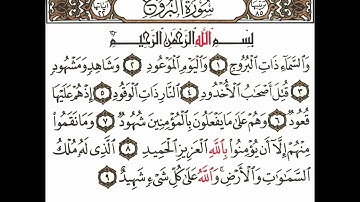 سُورَةُ البُرُوجِ
بِسْمِ اللَّهِ الرَّحْمَٰنِ الرَّحِيمِ
وَالسَّمَآءِ ذَاتِ الْبُرُوجِ ۝١ وَالْيَوْمِ الْمَوْعُودِ ۝٢ وَشَاهِدٍ وَمَشْهُودٍ
۝٣ قُتِلَ أَصْحَٰبُ الْأُخْدُودِ ۝٤ النَّارِ ذَاتِ الْوَقُودِ ۝٥ إِذْ هُمْ عَلَيْهَا
قُعُودٌ ۝٦ وَهُمْ عَلَىٰ مَا يَفْعَلُونَ بِالْمُؤْمِنِينَ شُهُودٌ ۝٧ وَمَا نَقَمُوا۟
مِنْهُمْ إِلَّآ أَن يُؤْمِنُوا۟ بِاللَّهِ الْعَزِيزِ الْحَمِيدِ ۝٨ الَّذِى لَهُۥ مُلْكُ
السَّمَٰوَٰتِ وَالْأَرْضِ ۚ وَاللَّهُ عَلَىٰ كُلِّ شَىْءٍ شَهِيدٌ ۝٩